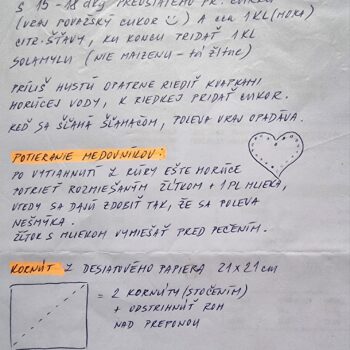 S 15-18 DKG PREOSIATEHO PR. CUKRU
(VRAJ POVAŽSKÝ CUKOR ☺) A CCA 1KL(MOKA)
CITR. ŠŤAVY, KU KONCU PRIDAŤ 1KL
SOLAMYLU (NIE MAIZENU - TÁ ŽLTNE)
PRÍLIŠ HUSTÚ OPATRNE RIEDIŤ KVAPKAMI
HORÚCEJ VODY, K RIEDKEJ PRIDAŤ CUKOR.
KEĎ SA ŠĽAHÁ ŠĽAHAČOM, POLEVA VRAJ OPADÁVA.
POTIERANIE MEDOVNÍKOV:
PO VYTIAHNUTÍ Z RÚRY EŠTE HORÚCE
POTRIEŤ ROZMIEŠANÝM ŽĹTKOM + 1PL MLIEKA,
VTEDY SA DAJÚ ZDOBIŤ TAK, ŽE SA POLEVA
NEŠMÝKA.
ŽĹTOK S MLIEKOM VYMIEŠAŤ PRED PEČENÍM.
KORNÚT Z DESIATOVÉHO PAPIERA 21x21cm
= 2 KORNÚTY (STOČENÍM)
+ ODSTRIHNÚŤ ROH
NAD PREPONOU